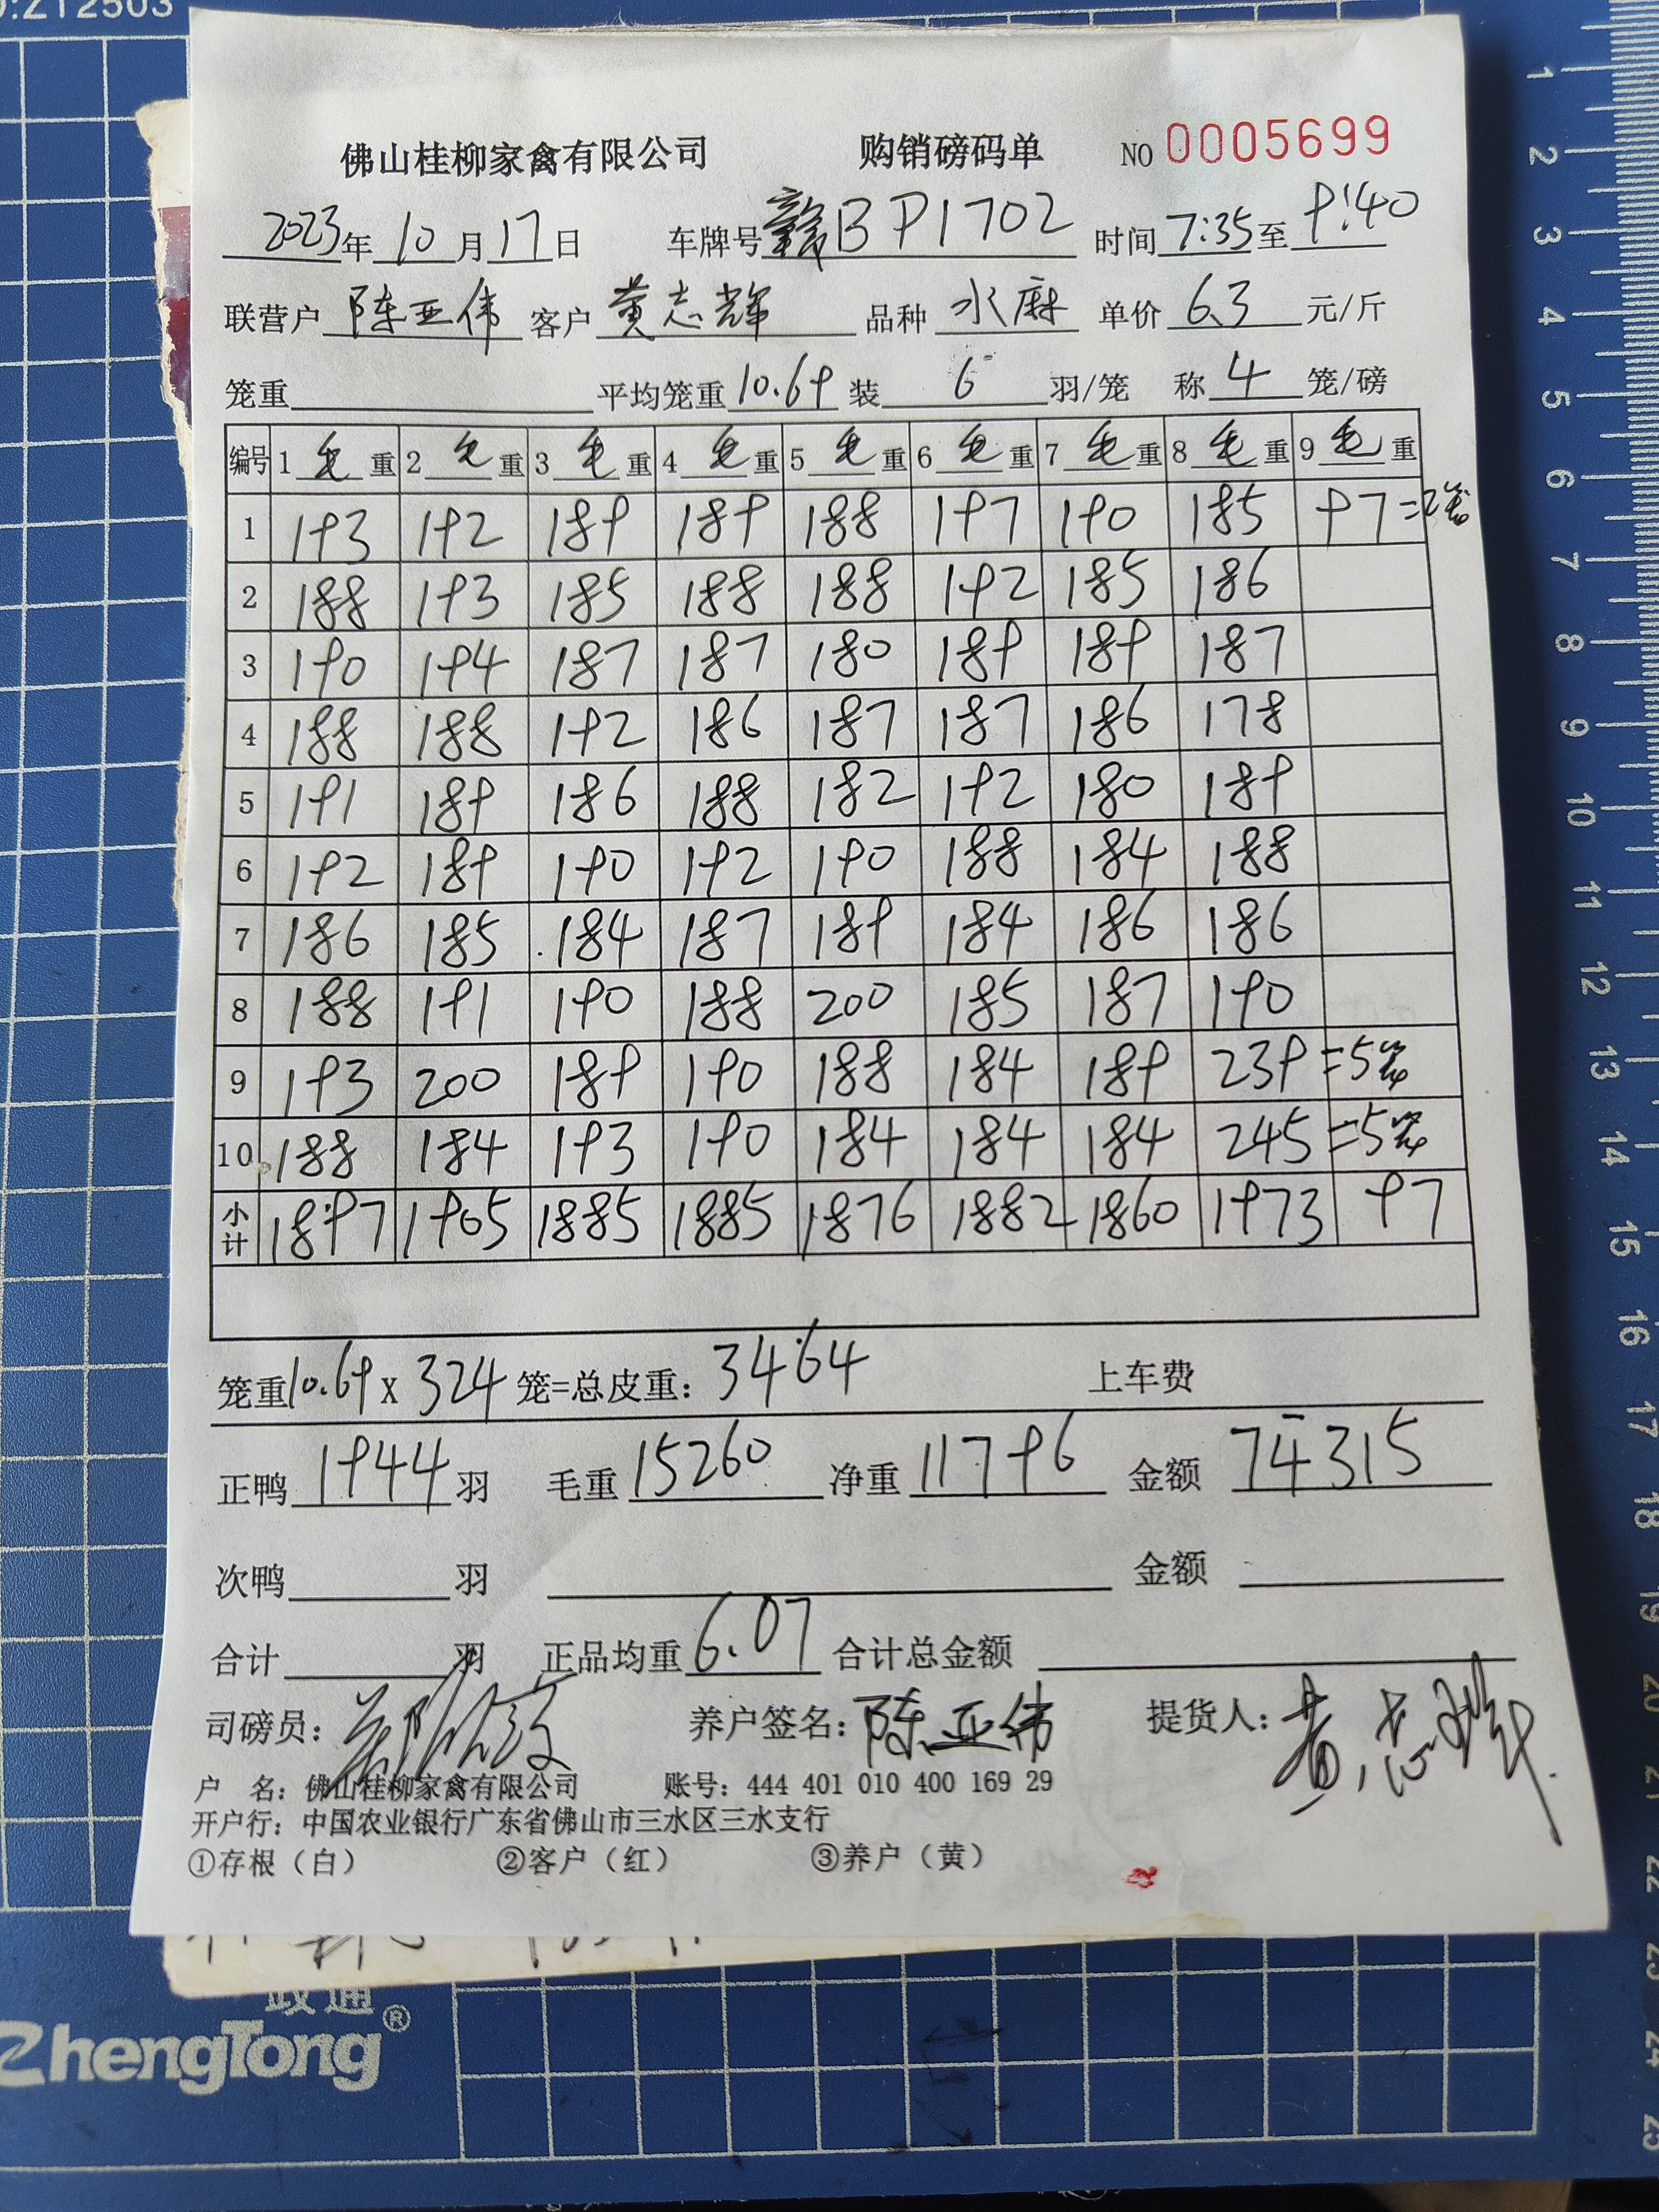 佛山桂柳家禽有限公司 购销磅码单 NO 0005699
2023年10月17日 车牌号 赣BP1702 时间 7:35至9:40
联营户 陈亚伟 客户 黄志辉 品种 水麻 单价 6.3 元/斤
笼重 平均笼重 10.69 装 6 羽/笼 称 4 笼/磅
编号 1 毛重 2 毛重 3 毛重 4 毛重 5 毛重 6 毛重 7 毛重 8 毛重 9 毛重
1 193 192 189 189 188 197 190 185 97=2笼
2 188 193 185 188 188 192 185 186
3 190 194 187 187 180 189 189 187
4 188 188 192 186 187 187 186 178
5 191 189 186 188 182 192 180 189
6 192 189 190 192 190 188 184 188
7 186 185 184 187 189 184 186 186
8 188 191 190 188 200 185 187 190
9 193 200 189 190 188 184 189 239=5笼
10 188 184 193 190 184 184 184 245=5笼
小计 1897 1905 1885 1885 1876 1882 1860 1973 97
笼重10.69x324笼=总皮重：3464 上车费
正鸭 1944 羽 毛重 15260 净重 11796 金额 74315
次鸭 羽 金额
合计 羽 正品均重 6.07 合计总金额
司磅员： 养户签名：陈亚伟 提货人：黄志辉
户 名：佛山桂柳家禽有限公司 账号：444 401 010 400 169 29
开户行：中国农业银行广东省佛山市三水区三水支行
①存根（白） ②客户（红） ③养户（黄）
政通
ZhengTong®
1
2
3
4
5
6
7
8
9
10
11
12
13
14
15
16
17
18
19
20
21
22
23
24
25